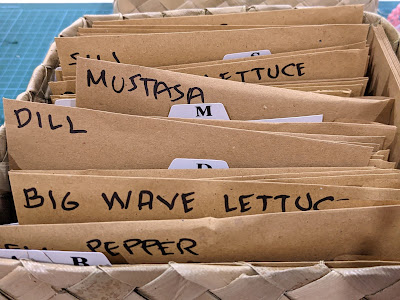 S
LETTUCE
MUSTASA
M
DILL
D
BIG WAVE LETTUCE
PEPPER
B